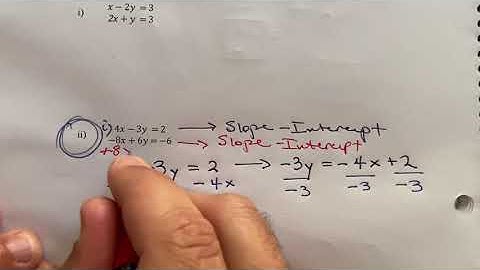 i) x − 2y = 3
2x + y = 3
ii) i) 4x − 3y = 2 → Slope-Intercept
−8x + 6y = −6 → Slope-Intercept
+8
3y = 2 → −3y = −4x + 2
−4x −3 −3 −3